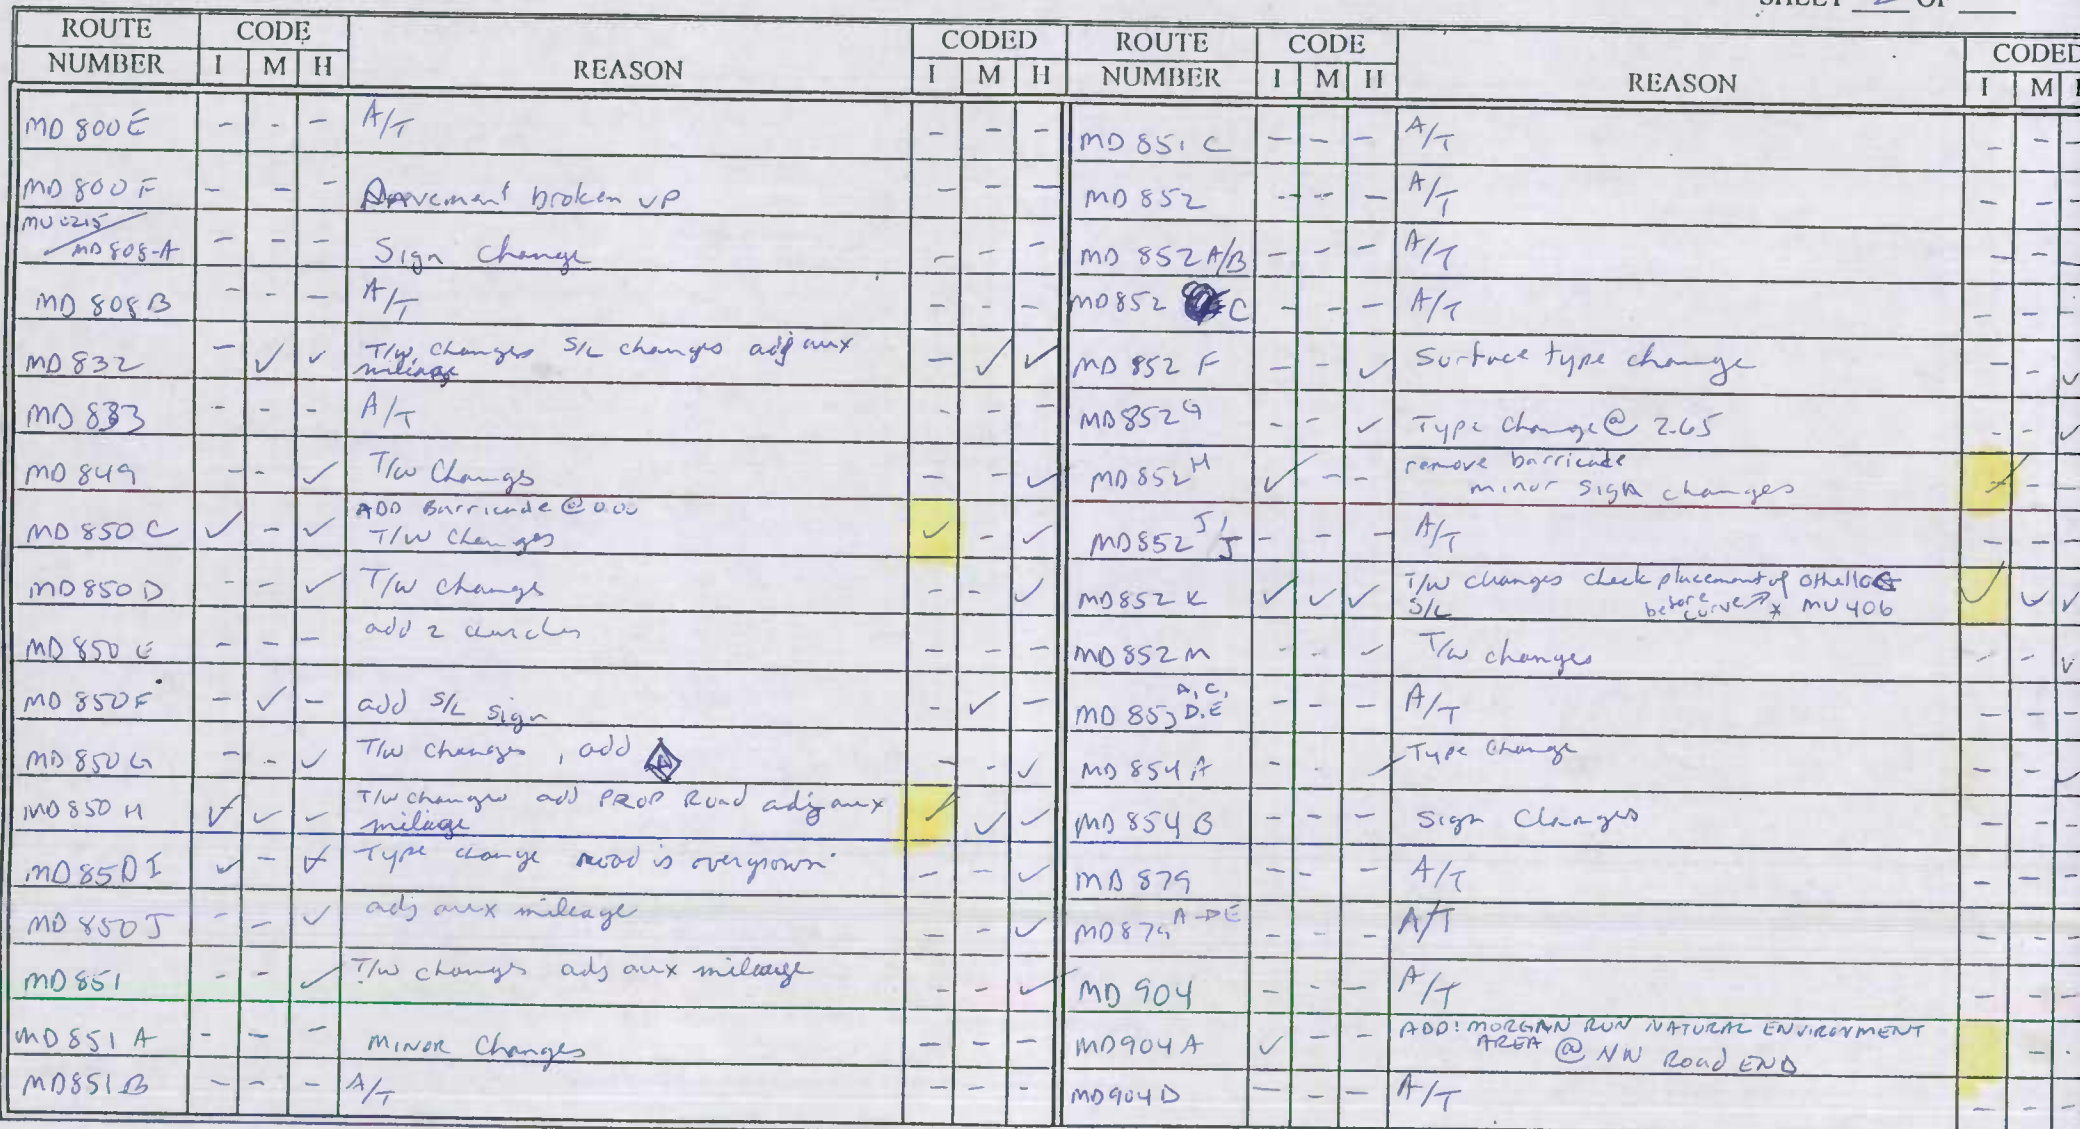 SHEET 2 OF
ROUTE NUMBER CODE I M H REASON CODED I M H
MD 800 E - - - A/T - - -
MD 800 F - - - Pavement broken up - - -
MU 0215
MD 808-A - - - Sign Change - - -
MD 808 B - - - A/T - - -
MD 832 - ✓ ✓ T/W, changes S/L changes adj aux - ✓ ✓
mileage
MD 833 - - - A/T - - -
MD 849 - - ✓ T/W Changes - - ✓
ADD Barricade @ 0.00
MD 850 C ✓ - ✓ T/W Changes ✓ - ✓
MD 850 D - - ✓ T/W changes - - ✓
MD 850 E - - - add 2 churches - - -
MD 850 F - ✓ - add S/L sign - ✓ -
MD 850 G - - ✓ T/W changes, add - - ✓
MD 850 H ✓ ✓ ✓ T/W changes add PROP Road adj aux ✓ ✓ ✓
mileage
MD 850 I ✓ - ✓ Type change road is overgrown - - ✓
MD 850 J - - ✓ adj aux mileage - - ✓
MD 851 - - ✓ T/W changes adj aux mileage - - ✓
MD 851 A - - - MINOR Changes - - -
MD 851 B - - - A/T - - -
ROUTE NUMBER CODE I M H REASON CODED I M
MD 851 C - - - A/T - - -
MD 852 - - - A/T - - -
MD 852 A/B - - - A/T - - -
MD 852 C - - - A/T - - -
MD 852 F - - ✓ Surface type change - - ✓
MD 852 G - - ✓ Type Change @ 2.65 - - ✓
MD 852 H ✓ - - remove barricade ✓ - -
minor sign changes
MD 852 J/J - - - A/T - - -
MD 852 K ✓ ✓ ✓ T/W changes check placement of Othello ✓ ✓ ✓
S/L before curve * MU 406
MD 852 M - - ✓ T/W changes - - ✓
MD 853 A, C, D, E - - - A/T - - -
MD 854 A - - ✓ Type Change - - ✓
MD 854 B - - - Sign Changes - - -
MD 879 - - - A/T - - -
MD 879 A→E - - - A/T - - -
MD 904 - - - A/T - - -
MD 904 A ✓ - - ADD! MORGAN RUN NATURAL ENVIRONMENT - -
AREA @ NW Road END
MD 904 D - - - A/T - - -